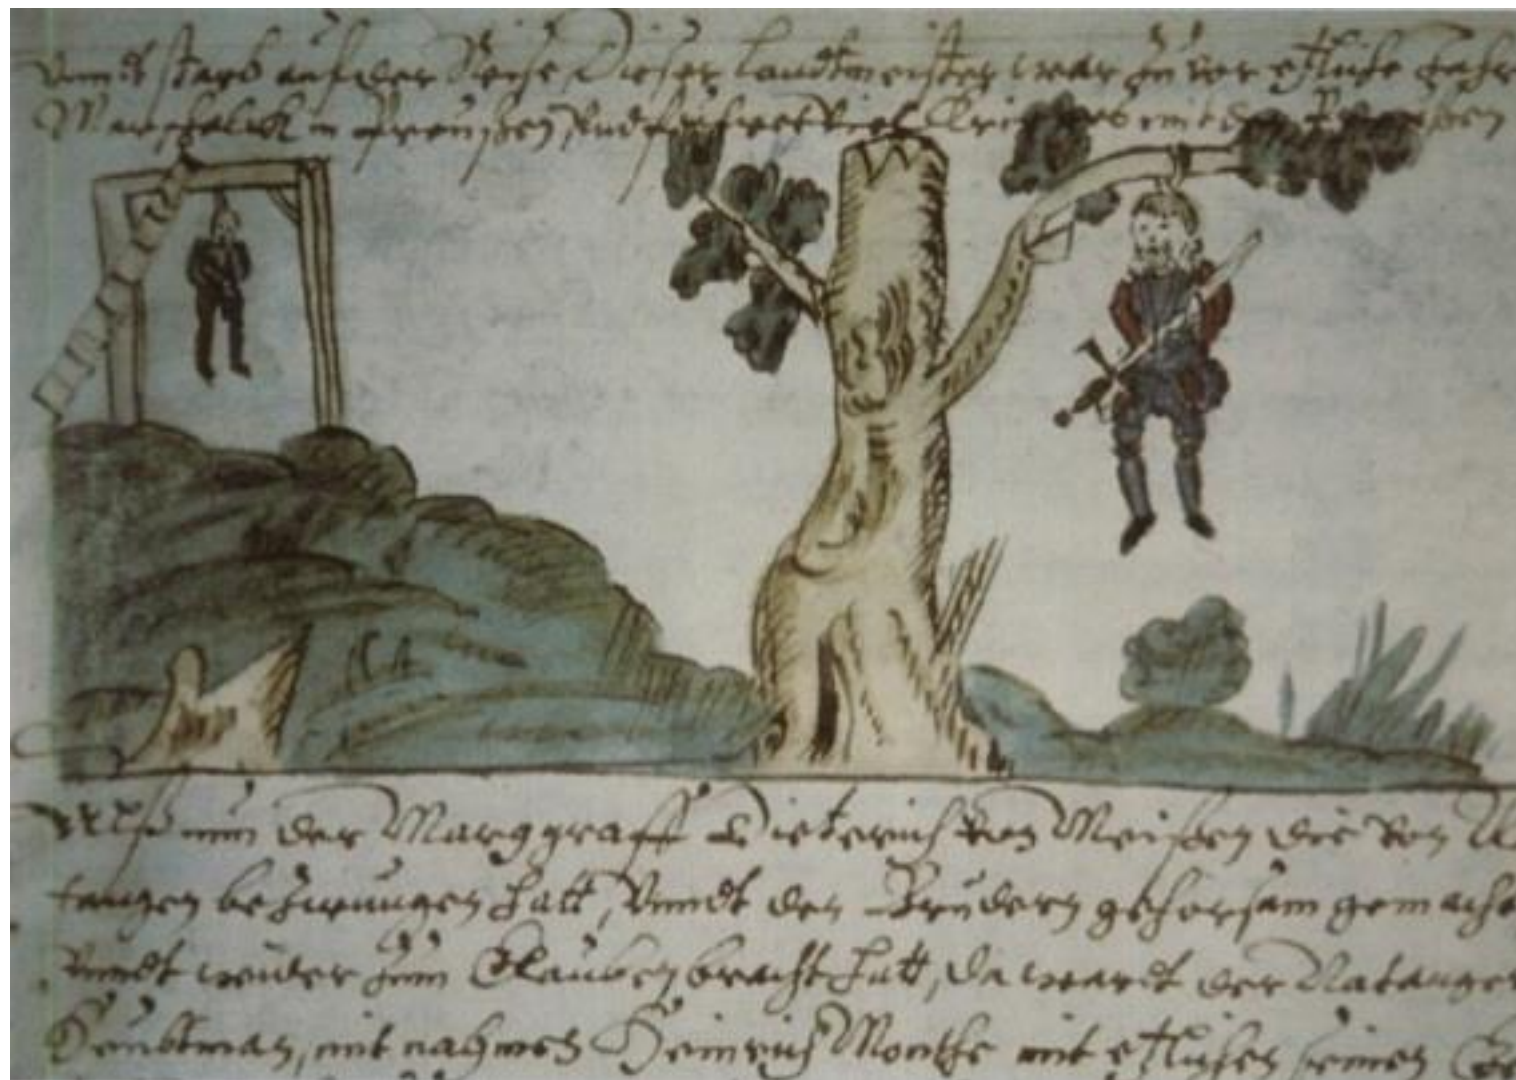 Vnndt starb auf der Reise, Dieser Landtmeister war zu vor etliche Jahr
Marschalck in Preußen, Vnd führet viel Krieges mit den Preussen
Alß nun der Marggraff Dieterich von Meissen die von
tangen bezwungen hatt, Vnndt den Brüdern gehorsam gemacht
Vnndt wider zum Glauben bracht hatt, da wardt der Natanger
Heubtman, mit nahmen Heinrich Monthe mit etlichen seinen